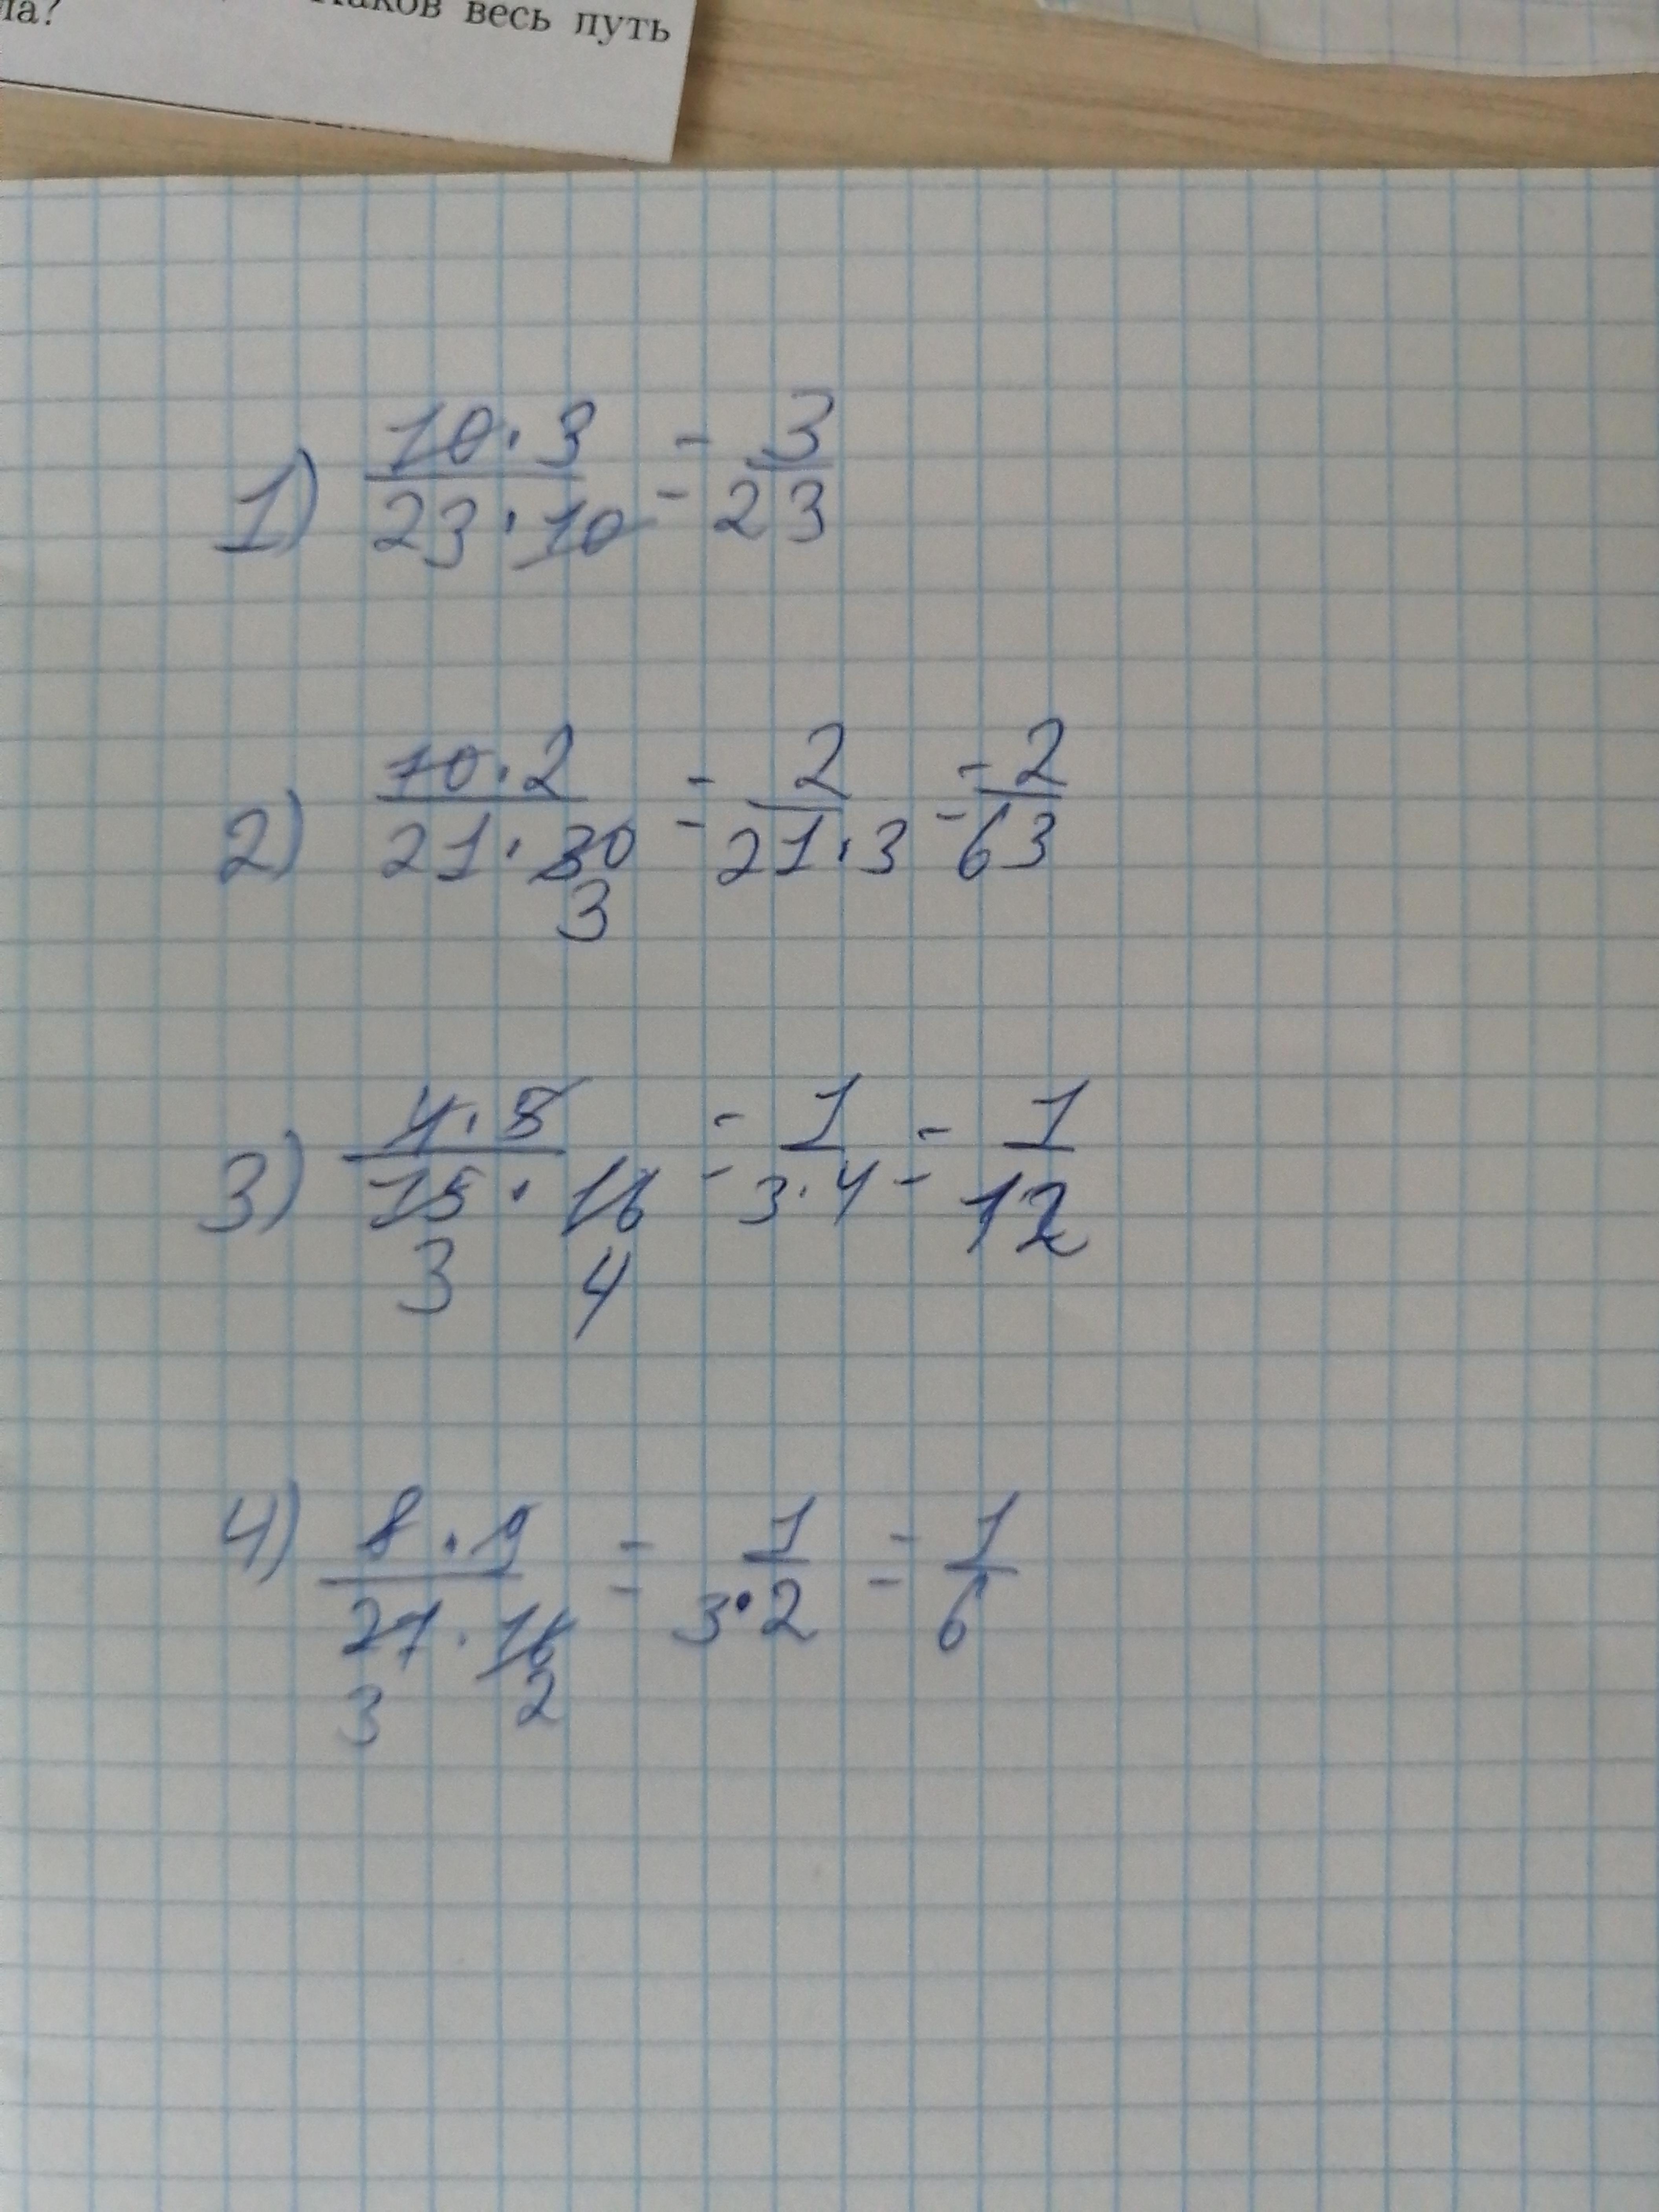 ла?
Каков весь путь
1) 10·3/23·10 = 3/23
2) 10·2/21·30 = 2/21·3 = 2/63
3
3) 4·5/15·16 = 1/3·4 = 1/12
3 4
4) 8·9/27·16 = 1/3·2 = 1/6
3 2